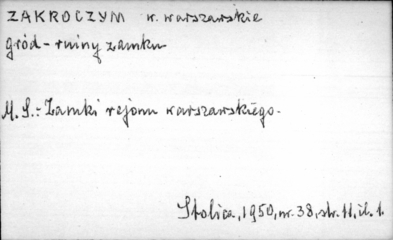 ZAKROCZYM w. warszawskie
gród - ruiny zamku
M. S.: Zamki rejonu warszawskiego.
Stolica, 1950, nr. 38, str. 11, il. 1.